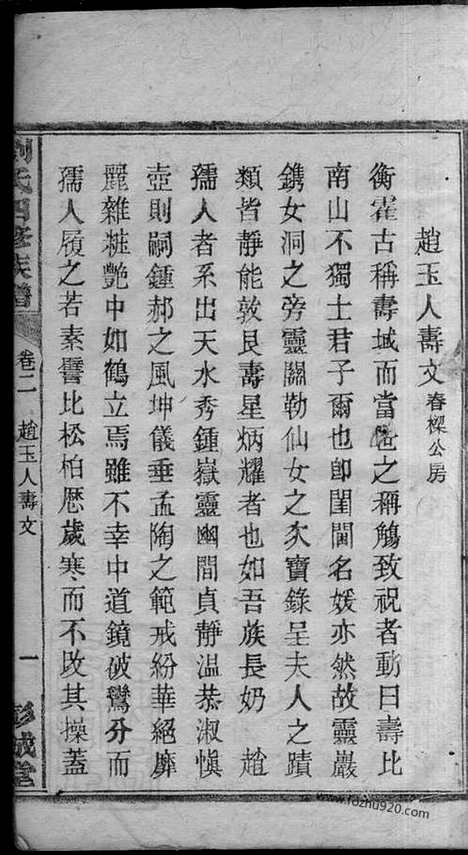 趙玉人壽文春樑公房
衡霍古稱壽域而當世之稱觴致祝者動曰壽比
南山不獨士君子爾也卽閨閫名媛亦然故靈巖
鐫女洞之旁靈關勒仙女之友寶錄呈夫人之蹟
類皆靜能敦艮壽星炳耀者也如吾族長奶 趙
孺人者系出天水秀鍾嶽靈幽閒貞靜溫恭淑愼
壺則嗣鍾郝之風坤儀垂孟陶之範戒紛華絕靡
麗雜粧艷中如鶴立焉雖不幸中道鏡破鸞分而
孺人履之若素譬比松柏厯歲寒而不改其操蓋
劉氏四修族譜 卷二 趙玉人壽文 一 彭城堂
www.fozhu920.com